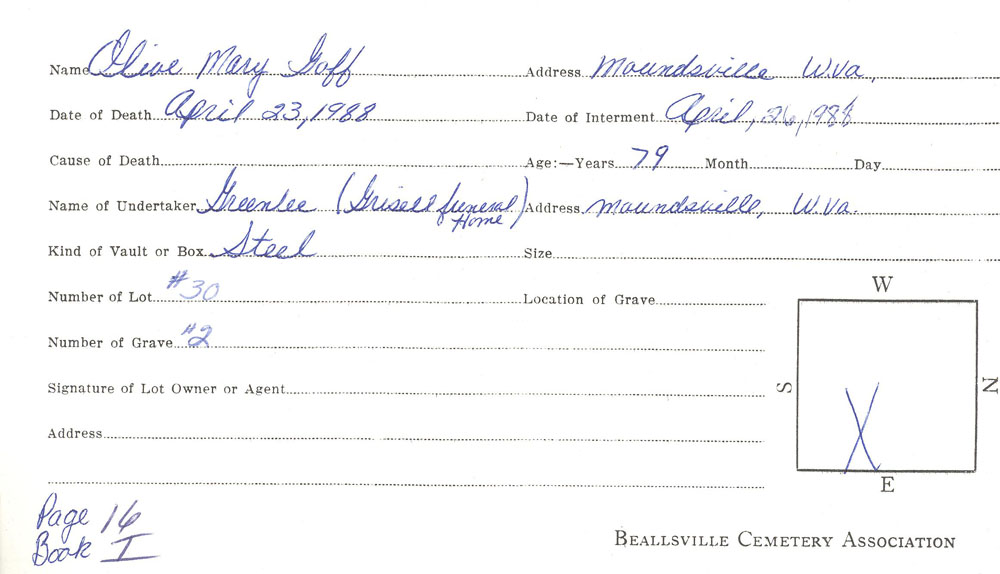 Name Olive Mary Goff Address Moundsville W.Va,
Date of Death April 23, 1988 Date of Interment April, 26, 1988
Cause of Death Age:—Years 79 Month Day
Name of Undertaker Greenlee (Grisell funeral Home) Address Moundsville, W.Va.
Kind of Vault or Box Steel Size
Number of Lot #30 Location of Grave
Number of Grave #2
Signature of Lot Owner or Agent
Address
W
S
N
E
X
Page 16
Book I
BEALLSVILLE CEMETERY ASSOCIATION